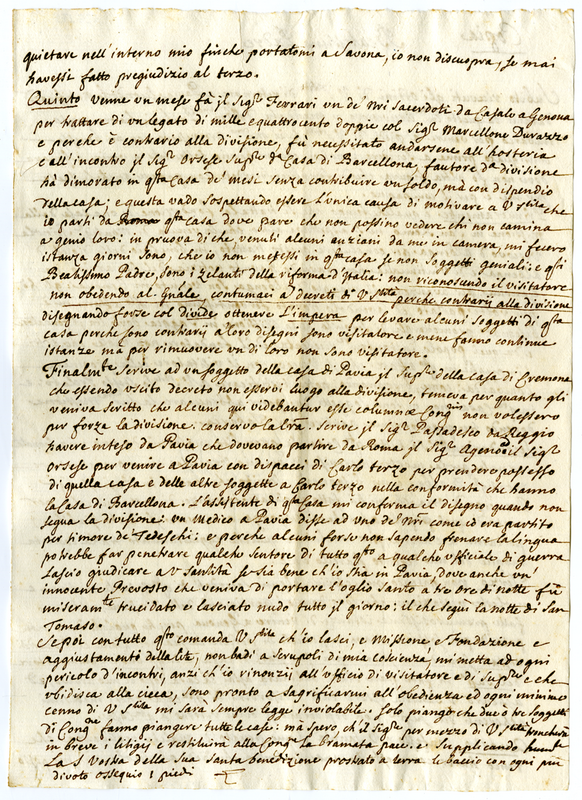 quietare nell'interno mio finche portatomi a Savona, io non discuopra, se mai
havesse fatto pregiudizio al terzo.
Quinto venne un mese fà jl Sig.r Ferrari un de' Nri Sacerdoti da Casale a Genova
per trattare di un legato di mille e quattrocento doppie col Sig.r Marcellone Durazzo
e perche è contrario alla divisione, fù necessitato andarsene all'hosteria
e all'incontro jl Sig.r Orsese Sup.re d.a Casa di Barcellona, fautore d.a divisione
hà dimorato in q.sta Casa de' mesi senza contribuire un soldo, mà con dispendio
della casa; e questa vado sospettando essere l'unica causa di motivare a V S.tità che
io parti da q.sta casa dove pare che non possino vedere chi non camina
a genio loro: in pruova di che, venuti alcuni anziani da me in camera, mi fecero
istanza giorni sono, che io non mettessi in q.sta casa se non soggetti geniali: e q.sti
Beatissimo Padre, sono i zelanti della riforma d'Italia: non riconoscendo il visitatore
non obedendo al Gñale, contumaci a decreti di V S.tità perche contrarij alla divisione
disegnando forse col divide ottenere l'impera per levare alcuni soggetti di q.sta
casa perche sono contrarij a loro disegni sono visitatore e mene fanno continue
istanze mà per rimuovere un di loro non sono visitatore.
Finalm.te scrive ad un soggetto della casa di Pavia jl Sup.re della casa di Cremona
che essendo uscito decreto non esservi luogo alla divisione, temeva per quanto gli
veniva scritto che alcuni qui videbantur esse columnæ Cong.nis non volessero
per forza la divisione. conservo la lra. Scrive jl Sig.r Passadesco da Reggio
havere inteso da Pavia che dovevano partire da Roma jl Sig.r Ageno e il Sig.r
Orsese per venire a Pavia con dispacci di Carlo terzo per prendere possesso
di quella casa e delle altre soggette a Carlo terzo nella conformità che hanno
la Casa di Barcellona. L'assistente di q.sta Casa mi conferma il disegno quando non
segua la divisione: un Medico a Pavia disse ad uno de' Nri come ed era partito
per timore de' Tedeschi: e perche alcuni forse non sapendo frenare la lingua
potrebbe far penetrare qualche sentore di tutto q.sto a qualche ufficiale di guerra
Lascio giudicare a V Santità se sia bene ch'io stia in Pavia, dove anche un
innocente Prevosto che veniva di portare l'oglio santo a tre ore di notte fù
miseram.te trucidato e lasciato nudo tutto jl giorno: il che seguì la notte di San
Tomaso.
Se poi con tutto q.sto comanda V S.tità ch'io lasci, e Missione, e Fondazione e
aggiustamento della lite, non badi a scrupoli di mia coscienza, mi metta ad ogni
pericolo d'incontri, anzi ch'io rinonzij all'ufficio di visitatore e di Sup.re e che
ubidisca alla cieca, sono pronto a sagrificarmi all'obedienza ed ogni minimo
cenno di V S.tità mi sarà sempre legge inviolabile. Solo piango che due o tre soggetti
di Cong.ne fanno piangere tutte le case: mà spero, ch'il Sig.re per mezzo di V S.tità troncherà
in breve i litigij e restituirà alla Cong.ne la bramata pace. e supplicando
La S Vostra della Sua Santa benedizione prostrato a terra le bacio con ogni più
divoto ossequio i piedi